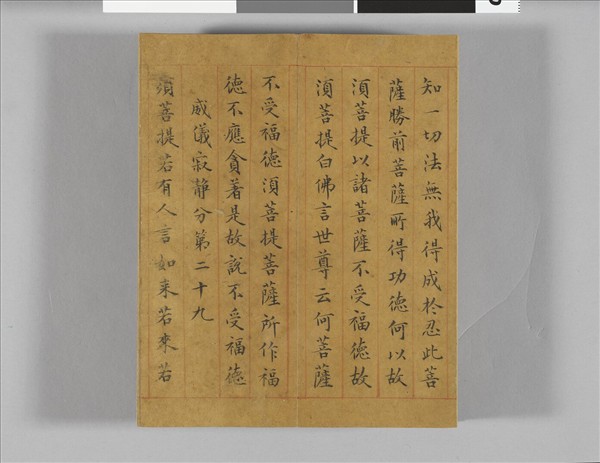 知一切法無我得成於忍此菩
薩勝前菩薩所得功德何以故
須菩提以諸菩薩不受福德故
須菩提白佛言世尊云何菩薩
不受福德須菩提菩薩所作福
德不應貪著是故說不受福德
威儀寂靜分第二十九
須菩提若有人言如来若來若